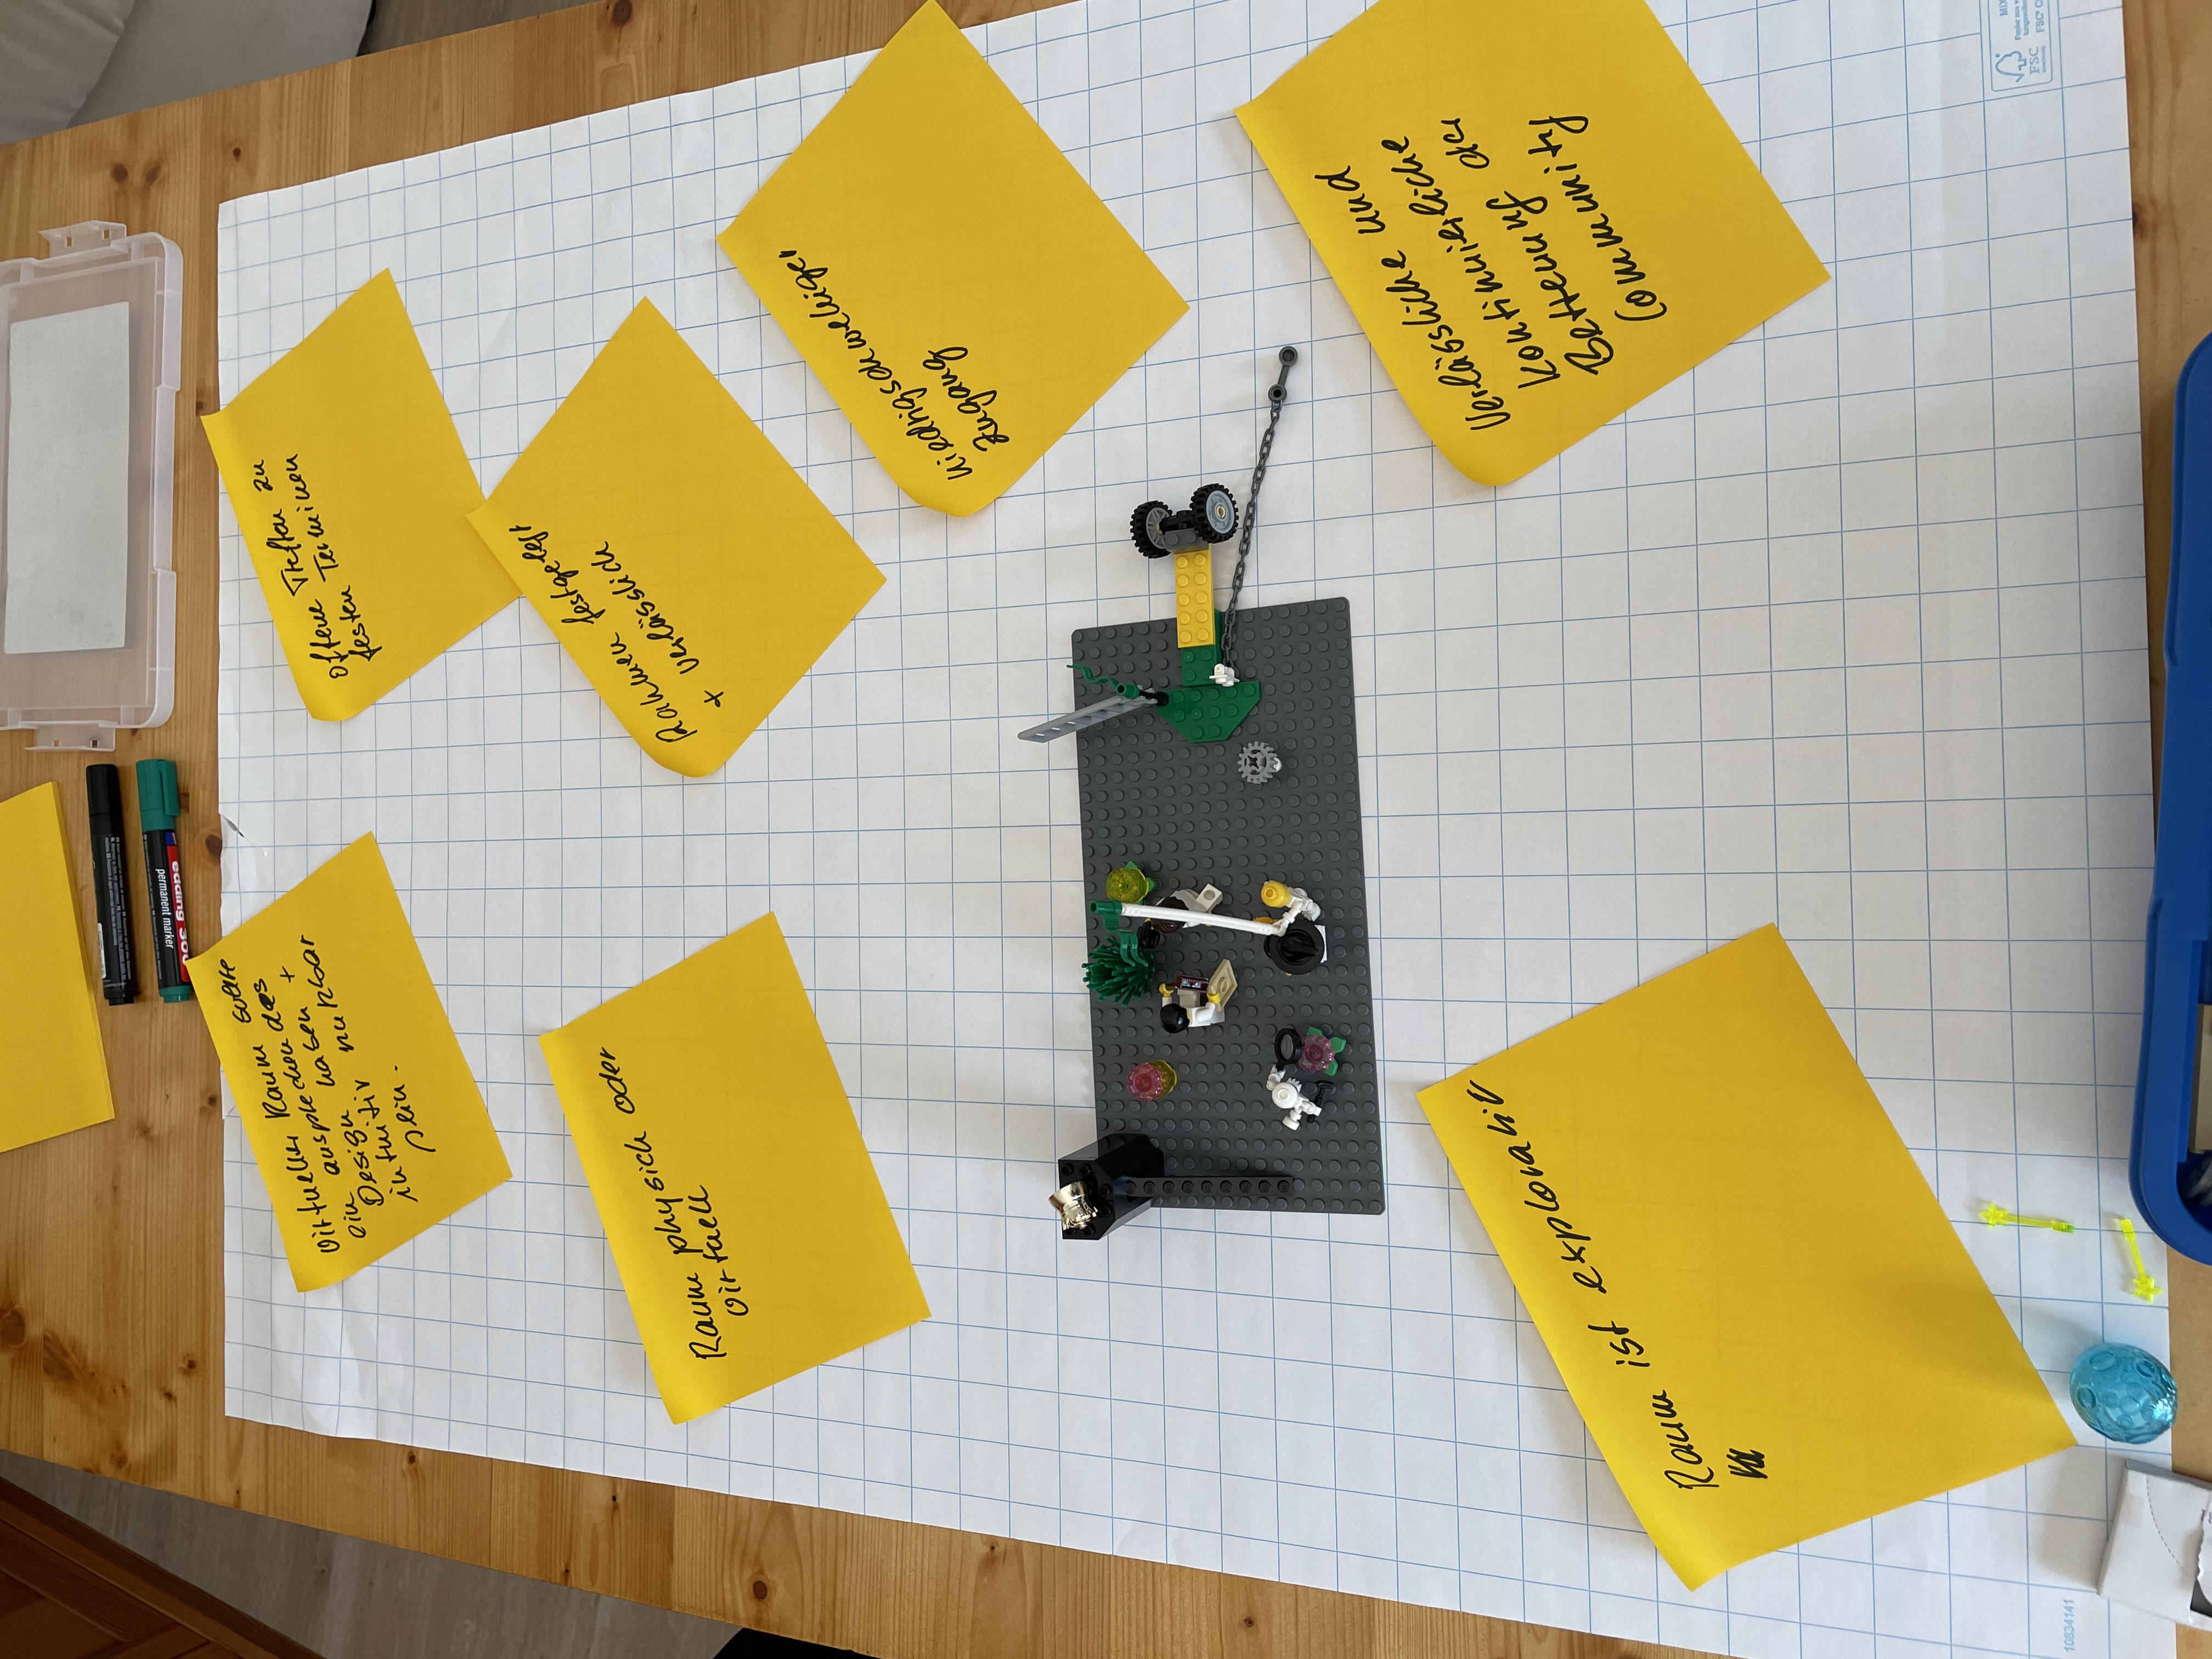 permanent marker
edding 300
Virtueller Raum sollte
ein ansprechendes
Design haben +
intuitiv nutzbar
sein.
offene Treffen zu
festen Terminen
Raum physich oder
virtuell
Rahmen festgelegt
+ verlässlich
niedrigschwelliger
Zugang
Verlässliche und
kontinuierliche
Betreuung der
Community
Raum ist explorativ
10834141
MIX
FSC